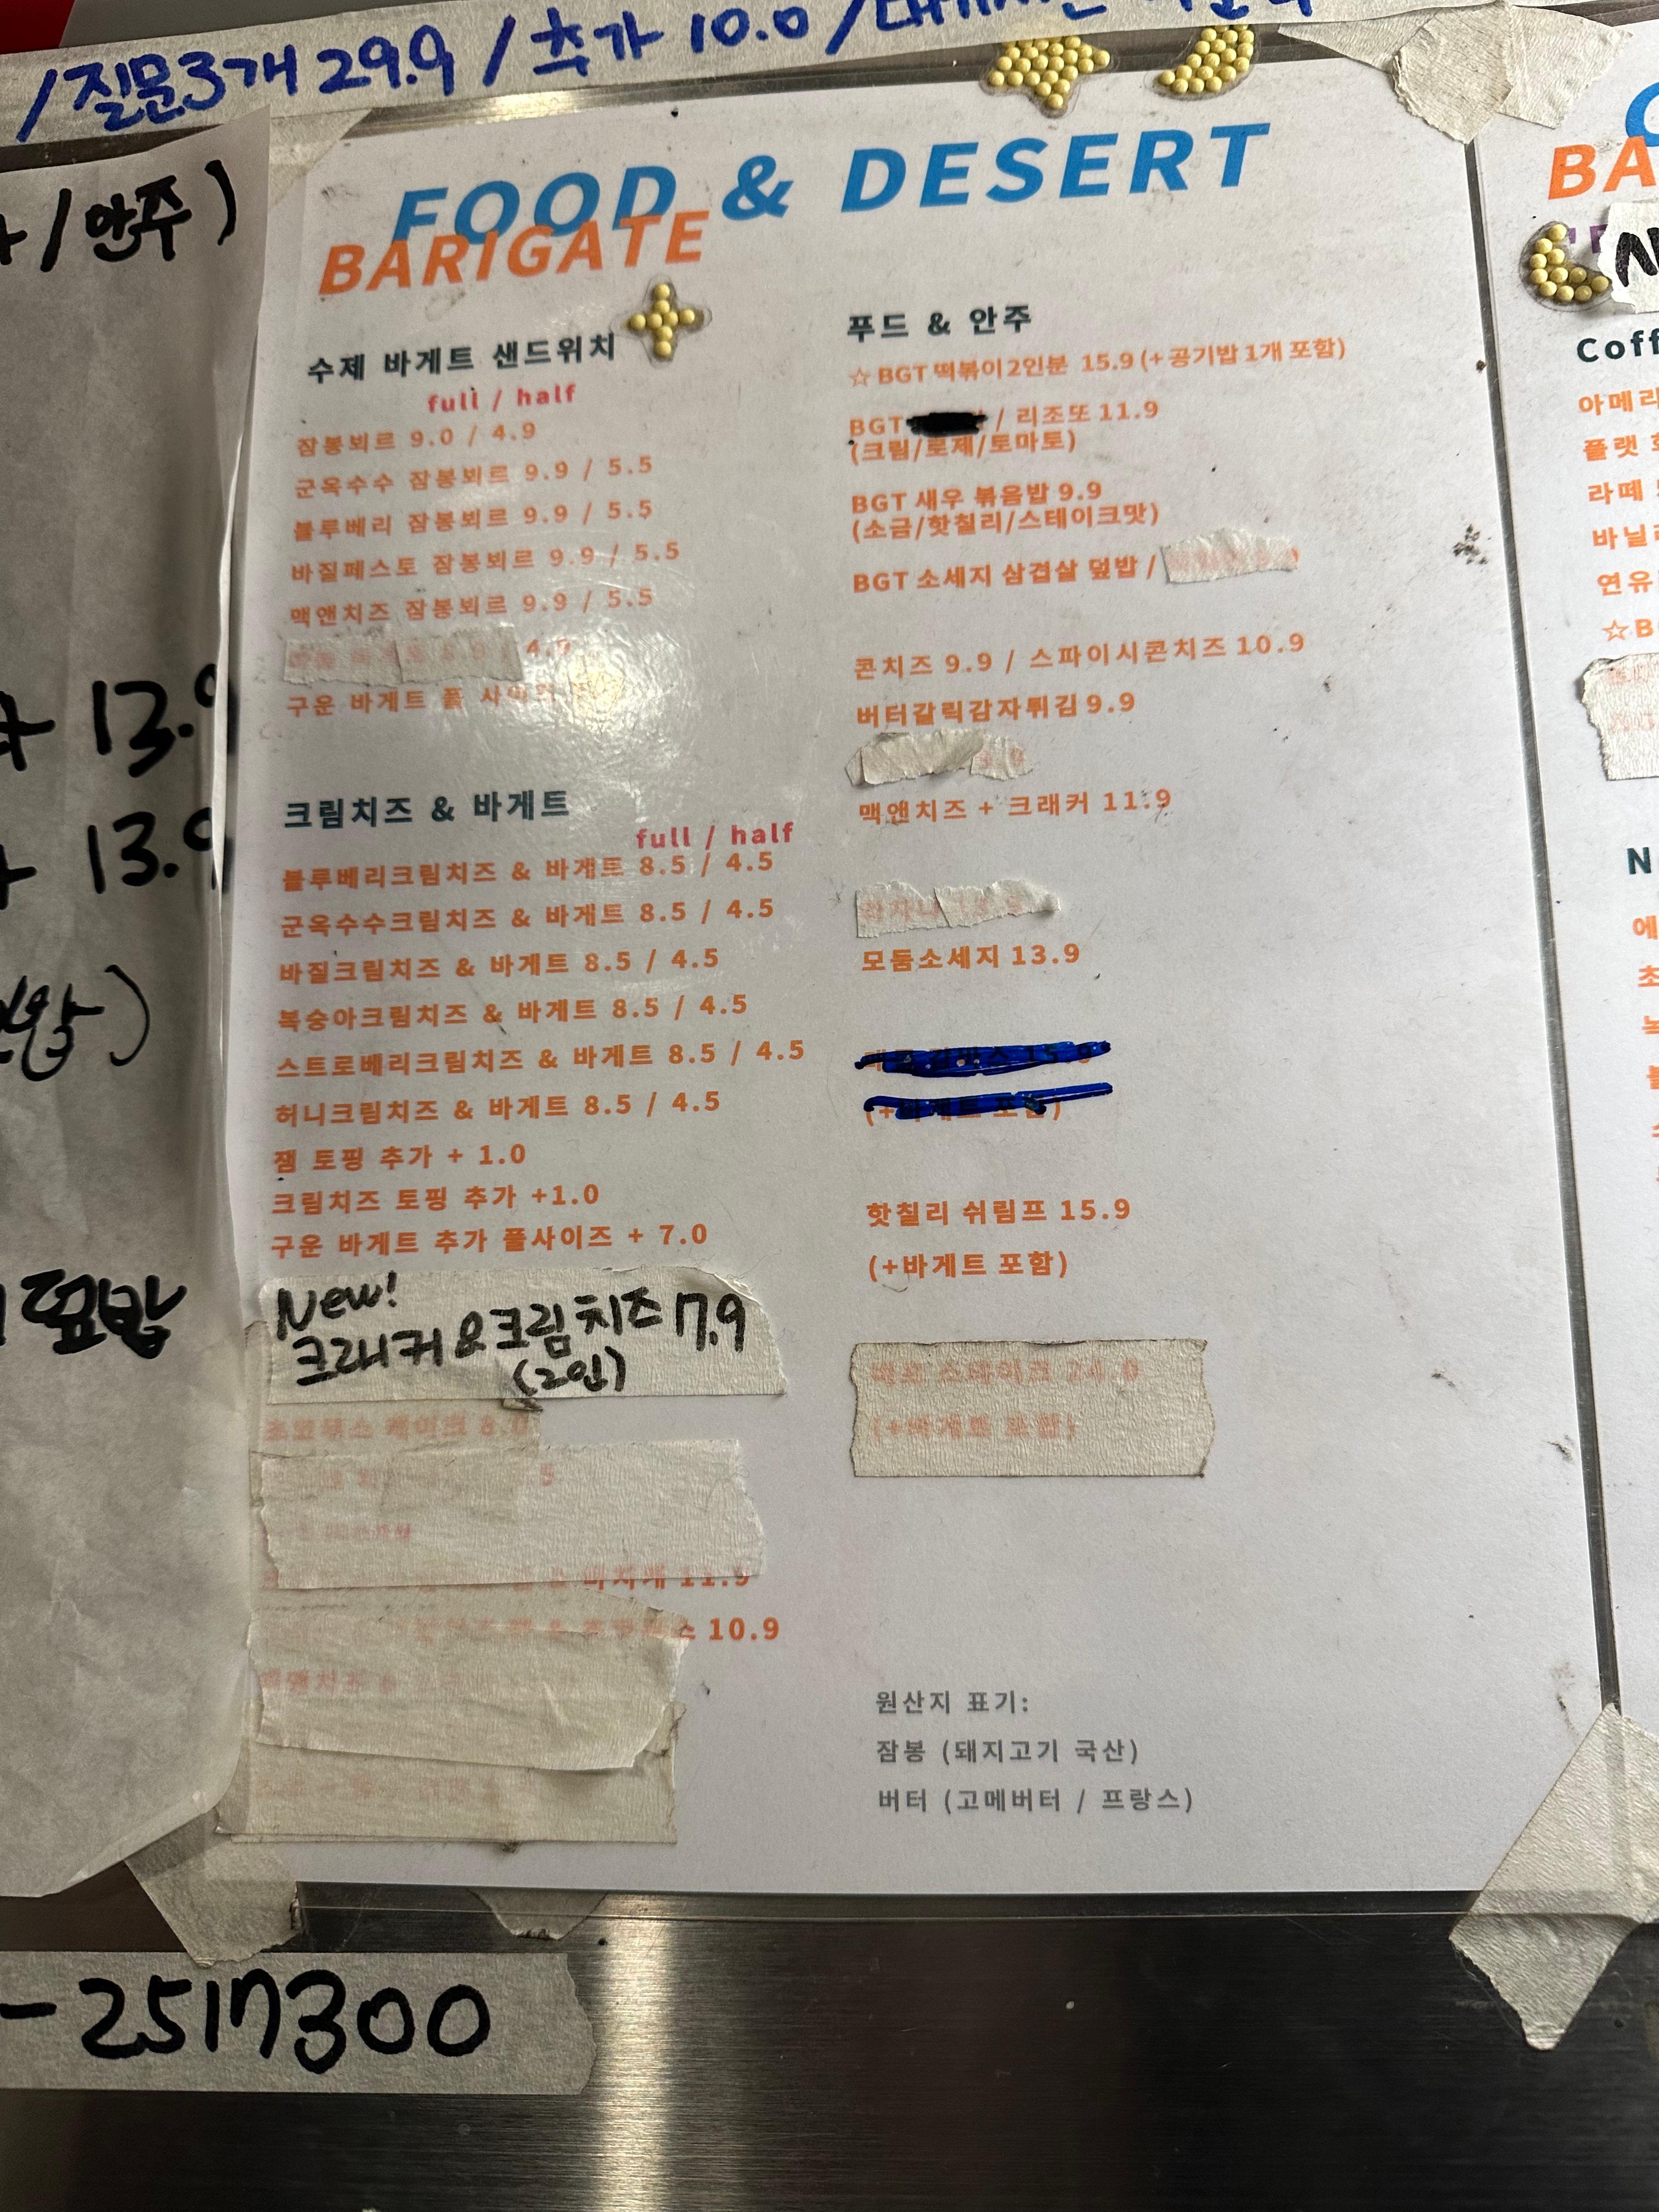 /질문3개 29.9 / 추가 10.0 /
/ 안주)
13.9
13.9
덮밥
-2517300
FOOD & DESERT
BARIGATE
수제 바게트 샌드위치
full / half
잠봉뵈르 9.0 / 4.9
군옥수수 잠봉뵈르 9.9 / 5.5
블루베리 잠봉뵈르 9.9 / 5.5
바질페스토 잠봉뵈르 9.9 / 5.5
맥앤치즈 잠봉뵈르 9.9 / 5.5
4.9
구운 바게트 풀 사이즈
크림치즈 & 바게트
full / half
블루베리크림치즈 & 바게트 8.5 / 4.5
군옥수수크림치즈 & 바게트 8.5 / 4.5
바질크림치즈 & 바게트 8.5 / 4.5
복숭아크림치즈 & 바게트 8.5 / 4.5
스트로베리크림치즈 & 바게트 8.5 / 4.5
허니크림치즈 & 바게트 8.5 / 4.5
잼 토핑 추가 + 1.0
크림치즈 토핑 추가 +1.0
구운 바게트 추가 풀사이즈 + 7.0
New!
크래커 & 크림치즈 17.9
(2인)
초코무스 케이크 8.0
5
11.9
10.9
맥앤치즈 &
푸드 & 안주
☆ BGT 떡볶이2인분 15.9 (+공기밥1개 포함)
BGT / 리조또 11.9
(크림/로제/토마토)
BGT 새우 볶음밥 9.9
(소금/핫칠리/스테이크맛)
BGT 소세지 삼겹살 덮밥 /
콘치즈 9.9 / 스파이시콘치즈 10.9
버터갈릭감자튀김 9.9
맥앤치즈 + 크래커 11.9
모둠소세지 13.9
15.9
(+바게트 포함)
핫칠리 쉬림프 15.9
(+바게트 포함)
스테이크 24.9
(+바게트 포함)
원산지 표기:
잠봉 (돼지고기 국산)
버터 (고메버터 / 프랑스)
BA
Coff
아메리
플랫
라떼
바닐
연유
☆B
N
에
초